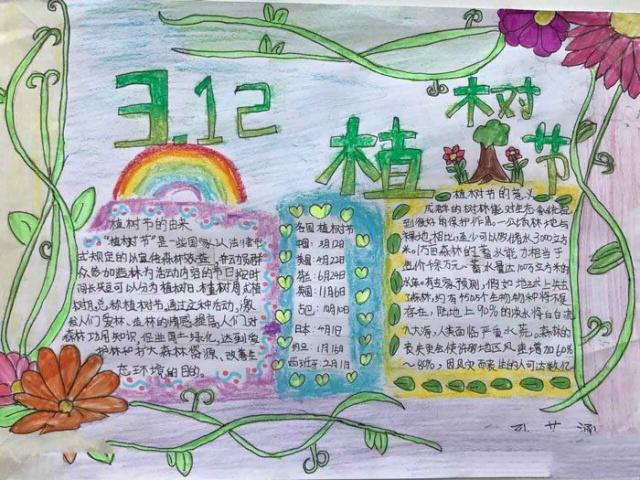 3.12
植树节
植树节的由来
"植树节"是一些国家以法律形
式规定的以宣传森林效益,并动员群
众参加造林为活动内容的节日,按时
间长短可以分为植树日、植树周或植
树月,总称植树节,通过这种活动,激
发人们爱林、造林的情感,提高人们对
森林功用知识,促进国土绿化,达到爱
护林护扩大森林资源、改善生
态环境的目的。
各国植树节
中国:3月12日
美国:4月22日
英国:11月6日
日本:4月1日
西班牙:2月1日
植树节的意义
成群的树林能对生态系统起
到很好的保护作用。一公顷林地与
裸地相比,至少可以多储水3000立方
米。1万亩森林的蓄水能力相当于
蓄水量达100万立方米的
水库。有专家预测,假如地球上失去
了森林,约有450万个生物物种将不复
存在,陆地上90%的淡水将白白流
入大海,人类面临严重水荒。森林的
丧失更会使许多地区风速增加60%
~80%,因风灾而丧生的人可达数亿